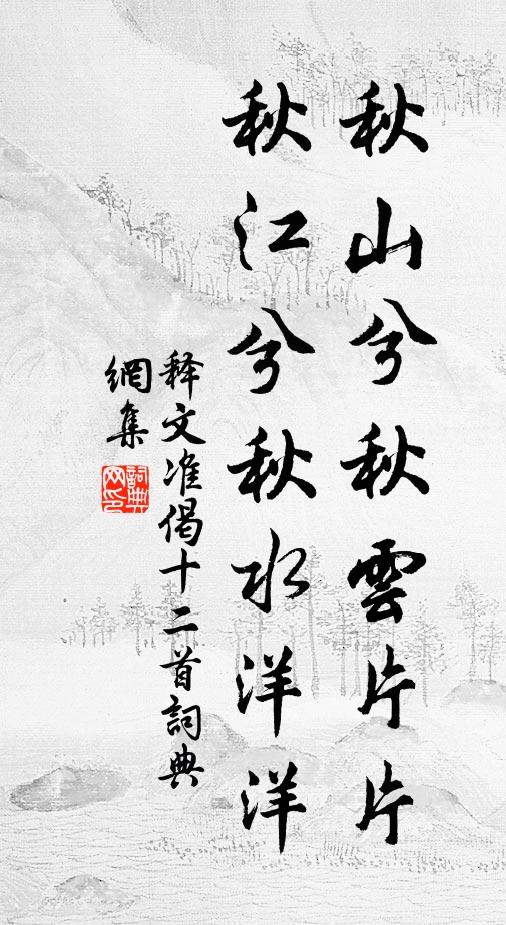 秋山兮秋雲片片
秋江兮秋水洋洋
释文准偈十二首詞典
網集
詞典
网印